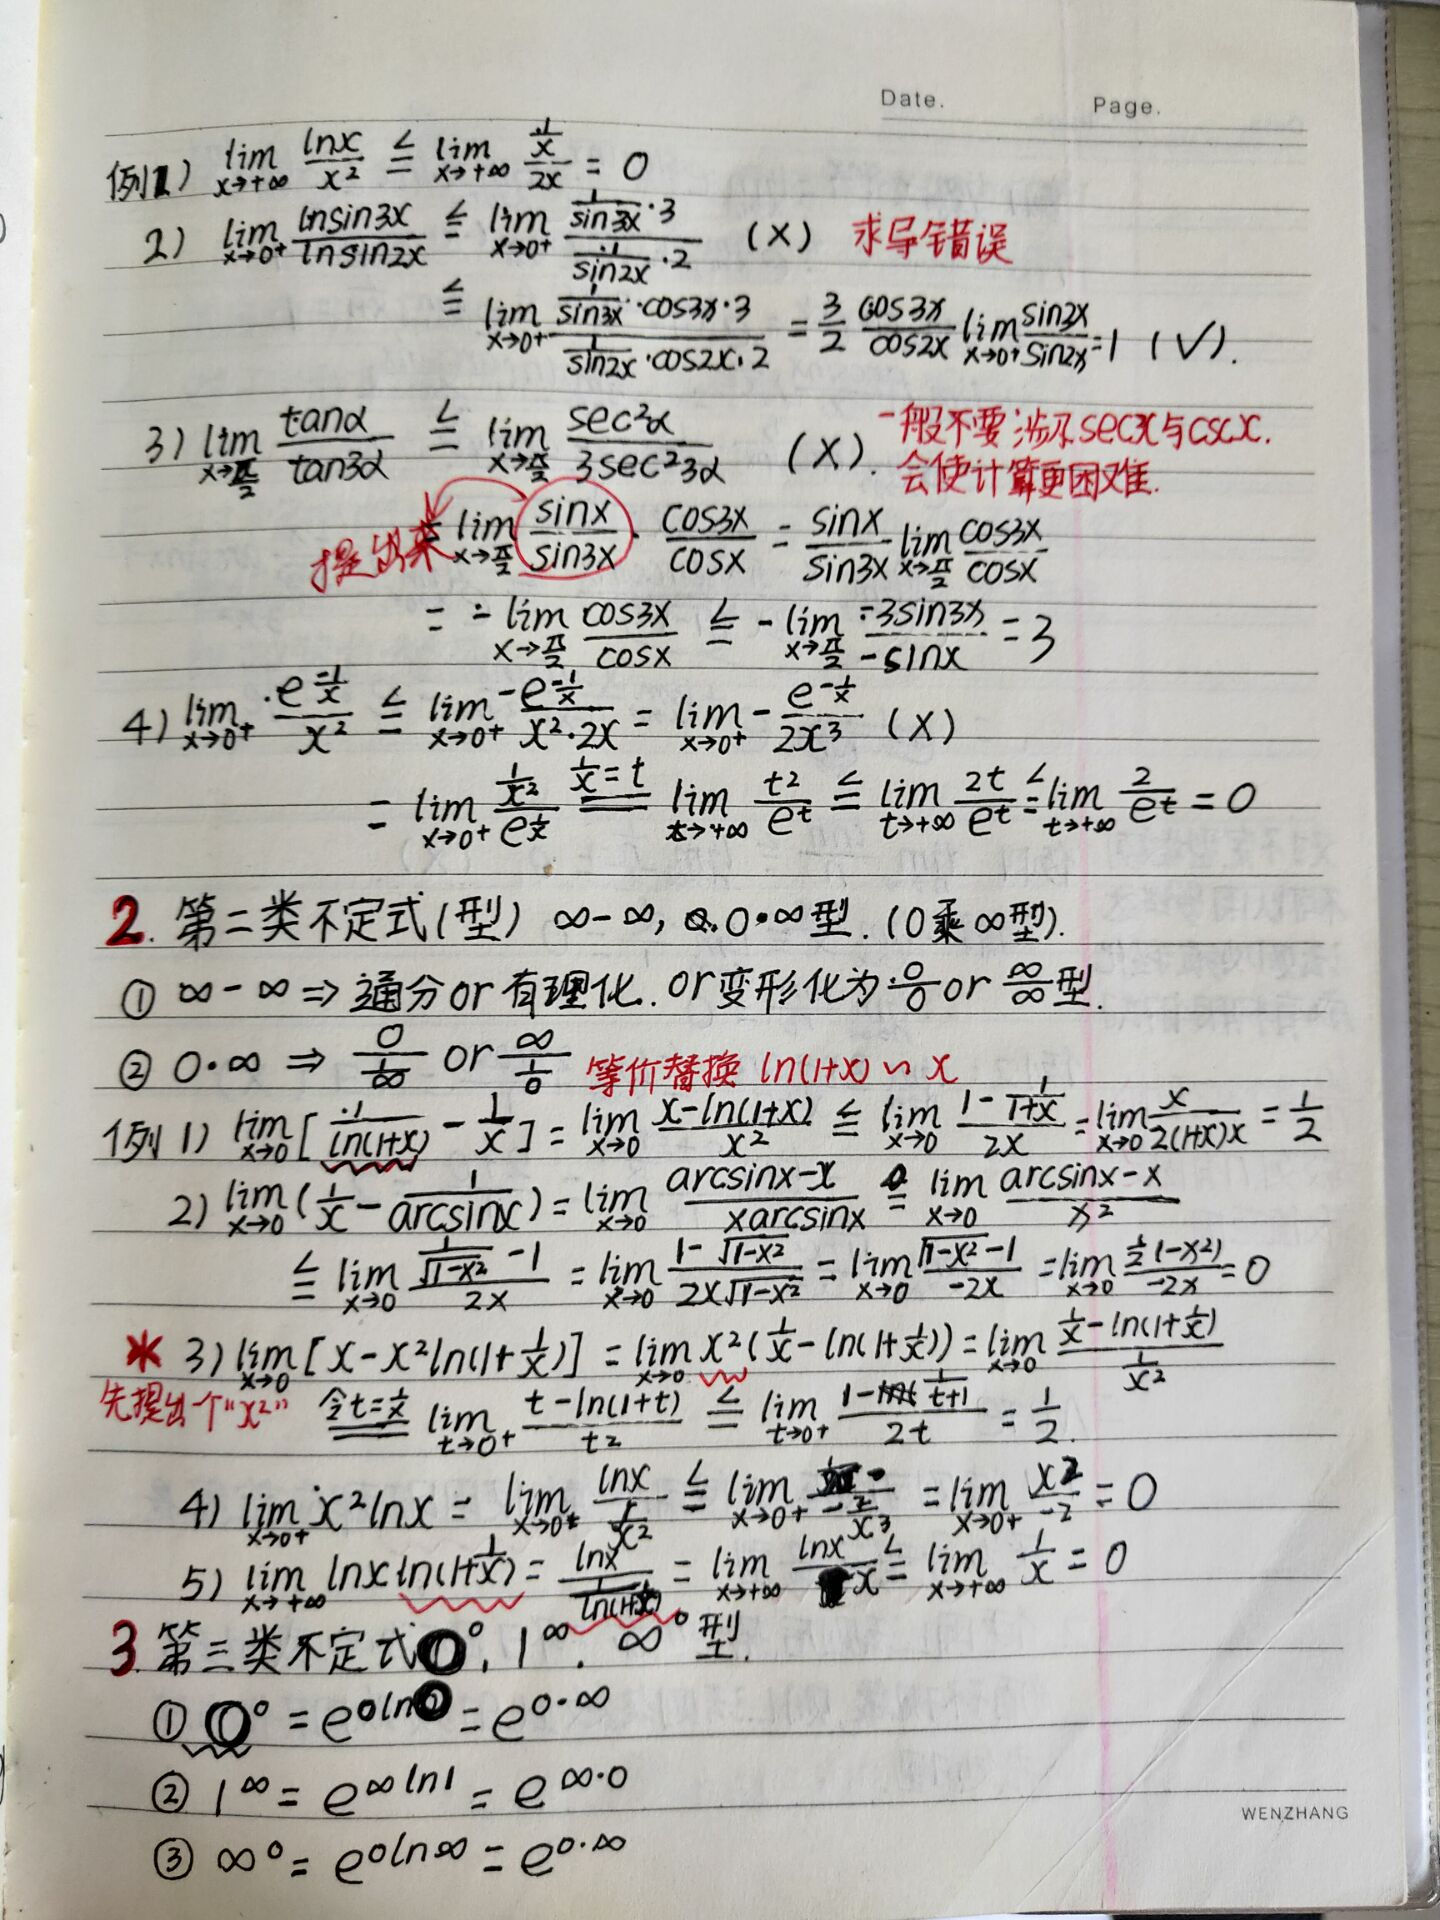 Date. Page.
例1) lim x→+∞ lnx/x² ≤ lim x→+∞ (1/x)/(2x) = 0
2) lim x→0+ lnsin3x/lnsin2x ≤ lim x→0+ (1/sin3x·3)/(1/sin2x·2) (×) 求导错误
≤ lim x→0+ (1/sin3x·cos3x·3)/(1/sin2x·cos2x·2) = 3/2 cos3x/cos2x lim x→0+ sin2x/sin2x = 1 (√).
3) lim x→π/2 tanα/tan3α ≤ lim x→π/2 sec²α/3sec²3α (×). 一般不要涉及secx与cscx.
会使计算更困难.
提出来 = lim x→π/2 sinx/sin3x · cos3x/cosx = sinx/sin3x lim x→π/2 cos3x/cosx
= - lim x→π/2 cos3x/cosx ≤ - lim x→π/2 -3sin3x/-sinx = 3
4) lim x→0+ e^(-1/x)/x² ≤ lim x→0+ -e^(-1/x)/(x²·2x) = lim x→0+ - e^(-1/x)/2x³ (×)
= lim x→0+ (1/x²)/e^(1/x) 1/x=t = lim t→+∞ t²/e^t ≤ lim t→+∞ 2t/e^t ≤ lim t→+∞ 2/e^t = 0
2. 第二类不定式(型) ∞-∞, 0·∞型. (0乘∞型).
① ∞-∞ ⇒ 通分or有理化. or变形化为0/0 or ∞/∞型.
② 0·∞ ⇒ 0/(1/∞) or ∞/(1/0) 等价替换 ln(1+x) ∽ x
例1) lim x→0 [1/ln(1+x) - 1/x] = lim x→0 (x-ln(1+x))/x² ≤ lim x→0 (1-1/(1+x))/2x = lim x→0 x/2(1+x)x = 1/2
2) lim x→0 (1/x - 1/arcsinx) = lim x→0 (arcsinx-x)/(xarcsinx) = lim x→0 (arcsinx-x)/x²
≤ lim x→0 (1/√(1-x²) -1)/2x = lim x→0 (1-√(1-x²))/(2x√(1-x²)) = lim x→0 (√(1-x²)-1)/-2x = lim x→0 ½(1-x²)/-2x = 0
* 3) lim x→0 [x-x²ln(1+1/x)] = lim x→0 x²(1/x-ln(1+1/x)) = lim x→0 (1/x-ln(1+1/x))/(1/x²)
先提出个"x²" 令t=1/x = lim t→0+ (t-ln(1+t))/t² ≤ lim t→0+ (1-1/(t+1))/2t = 1/2.
4) lim x→0+ x²lnx = lim x→0+ lnx/(1/x²) ≤ lim x→0+ /(-2/x³) = lim x→0+ x²/-2 = 0
5) lim x→+∞ lnxln(1+1/x) = lnx/(1/ln(1+1/x)) = lim x→+∞ lnx/x ≤ lim x→+∞ 1/x = 0
3. 第三类不定式0⁰, 1^∞, ∞⁰型.
① 0⁰ = e^(0ln0) = e^(0·∞)
② 1^∞ = e^(∞ln1) = e^(∞·0)
③ ∞⁰ = e^(0ln∞) = e^(0·∞)
WENZHANG